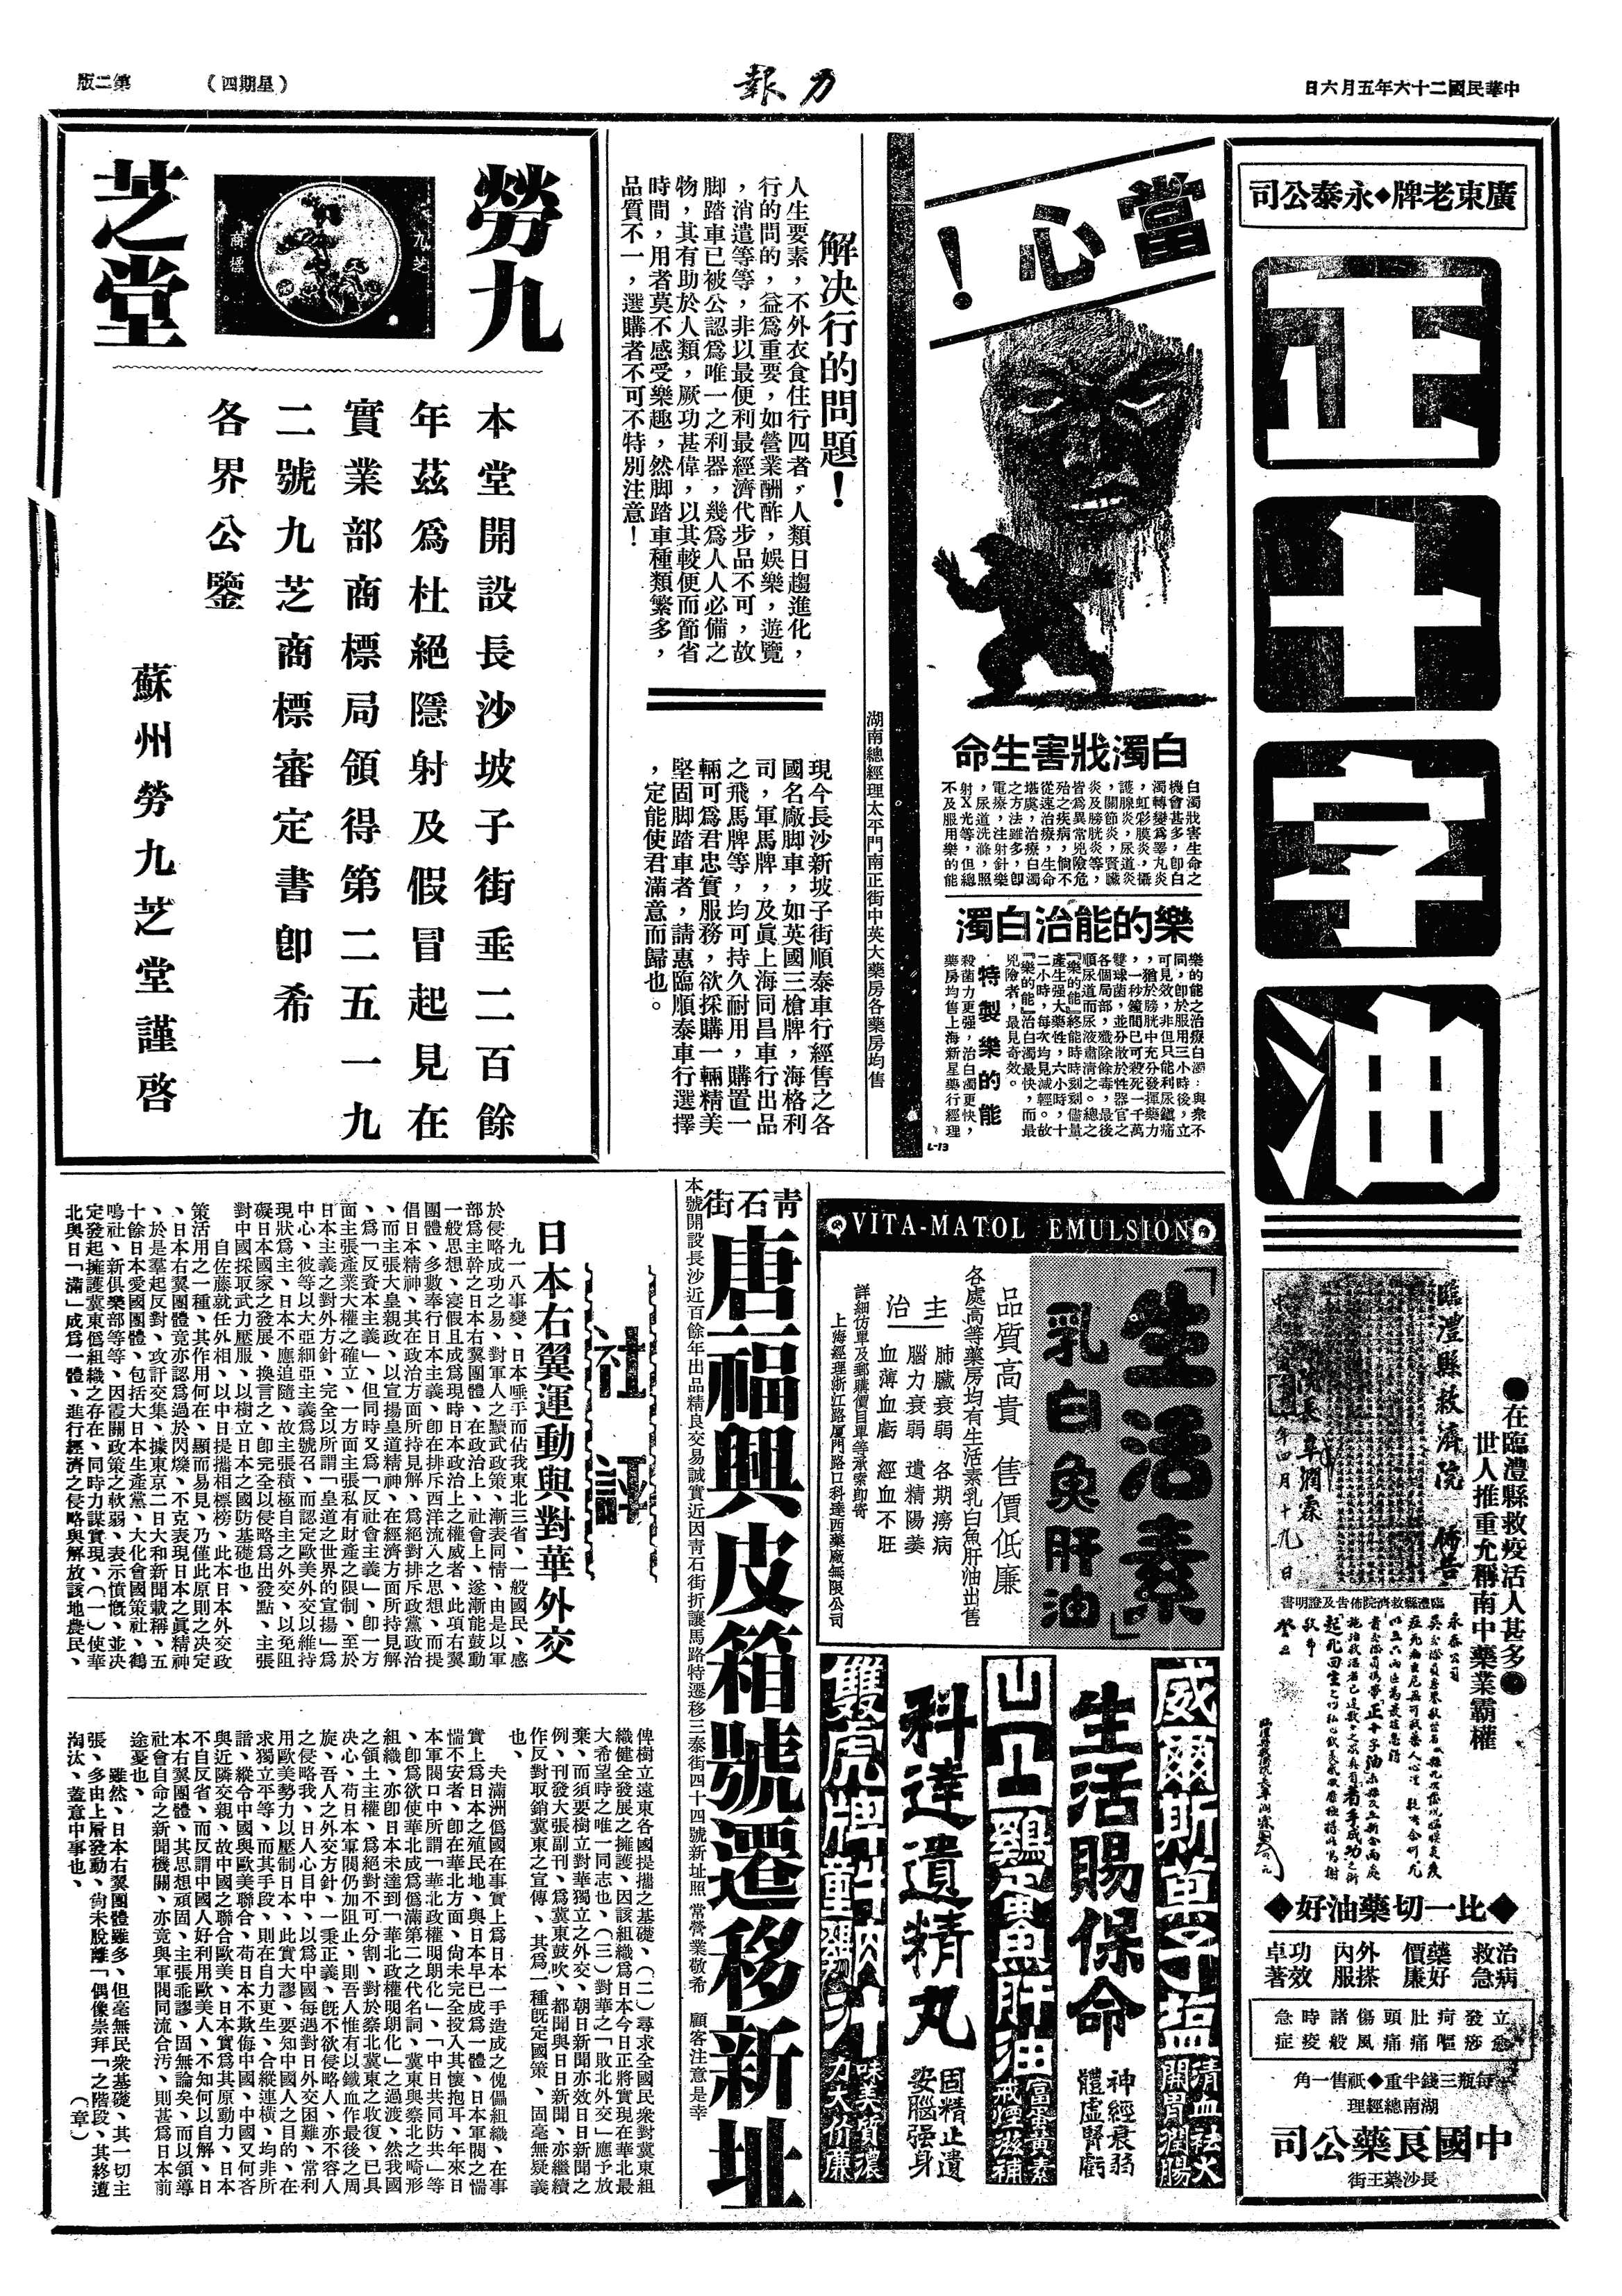 中華民國二十六年五月六日
力報
（星期四）
第二版
廣東老牌◆永泰公司
正十字油
●在臨澧縣救疫活人甚多●
世人推重允稱南中藥業霸權
臨澧縣救濟院佈告
臨澧縣救濟院佈告及證明書
◆比一切藥油好◆
治病救急
藥好價廉
外搽內服
功效卓著
每瓶三錢半重◆祇售一角
湖南總經理
中國良藥公司
長沙藥王街
當心！
白濁戕害生命
白濁戕害生命之
機會甚多，卽白
濁轉變爲睪丸炎
，虹彩膜炎，攝
護腺炎，尿道炎
，關節炎，腎臟
炎及膀胱炎等，
皆爲異常兇險危
殆之疾病，倘不
從速治療，生命
堪虞，治療白濁
之方法雖多，卽
電療，注射針藥
，尿道洗滌，照
射X光等，但總
不及服用樂的能
樂的能治白濁
樂的能之治療白濁：與衆不
同，卽於服用三小時後，立
可見效，非但只能利尿鎭痛
，猶於膀胱中充分發揮藥力
，一秒鐘間已可殺死一千萬
雙球菌，並分散於性器官之
各個局部，殲除餘毒，最後
順尿道而尿液肅淸之。總之
『樂的能』終能時時刻刻儘量
產生强大藥性，六小時，十
二小時，每次均見減輕。故
『樂的能』治白濁最快，而最
兇險者，最見奇效。
特製樂的能
殺菌力更强，治白濁更快，
藥房均售上海新星藥行經理
L-13
湖南總經理太平門南正街中英大藥房各藥房均售
解決行的問題！
人生要素，不外衣食住行四者，人類日趨進化，
行的問的，益爲重要，如營業酬酢，娛樂，遊覽
，消遣等等，非以最便利最經濟代步品不可，故
脚踏車已被公認爲唯一之利器，幾爲人人必備之
物，其有助於人類，厥功甚偉，以其較便而節省
時間，用者莫不感受樂趣，然脚踏車種類繁多，
品質不一，選購者不可不特別注意！
現今長沙新坡子街順泰車行經售之各
國名廠脚車，如英國三槍牌，海格利
司，軍馬牌，及眞上海同昌車行出品
之飛馬牌等，均可持久耐用，購置一
輛可爲君忠實服務，欲採購一輛精美
堅固脚踏車者，請惠臨順泰車行選擇
，定能使君滿意而歸也。
勞九芝堂
九芝
商標
本堂開設長沙坡子街垂二百餘
年茲爲杜絕隱射及假冒起見在
實業部商標局領得第二五一九
二號九芝商標審定書卽希
各界公鑒
蘇州勞九芝堂謹啓
VITA-MATOL EMULSION
「生活素」
乳白魚肝油
品質高貴 售價低廉
各處高等藥房均有生活素乳白魚肝油出售
主治
肺臟衰弱 各期癆病
腦力衰弱 遺精陽萎
血薄血虧 經血不旺
詳細仿單及郵購價目單等承索卽寄
上海經理浙江路厦門路口科達西藥廠無限公司
威爾斯菓子鹽
清血祛火
開胃潤腸
生活賜保命
神經衰弱
體虛腎虧
凹凸雞蛋魚肝油
富蛋黃素
戒煙滋補
科達遺精丸
固精止遺
安腦强身
雙虎牌
味美質濃
力大價廉
青石街
唐福興皮箱號遷移新址
本號開設長沙近百餘年出品精良交易誠實近因靑石街折讓馬路特遷移三泰街四十四號新址照常營業敬希 顧客注意是幸
社評
日本右翼運動與對華外交
九一八事變、日本唾手而佔我東北三省、一般國民、感
於侵略成功之易、對軍人之黷武政策、漸表同情、由是以軍
部爲主幹之日本右翼團體、在政治上、社會上、遂漸能鼓動
一般思想、寖假且成爲現時日本政治上之權威者、此項右翼
團體、多數奉行日本主義、卽在排斥西洋流入之思想、而提
倡日本精神、其在政治方面所持見解、爲絕對排斥政黨政治
、而主張大皇親政、以宣揚皇道精神、在經濟方面所持見解
、爲「反資本主義」、但同時又爲「反社會主義」、卽一方
面主張產業大權之確立、一方面主張私有財產之限制、至於
日本主義之對外方針、完全以所謂「皇道之世界的宣揚」爲
中心、彼等以大亞細亞主義爲號召、而認定歐美外交以維持
現狀爲主、日本不應追隨、故主張積極自主之外交、以免阻
礙日本國家之發展、換言之、卽完全以侵略爲出發點、主張
對中國採取武力壓服、以樹立日本之國防基礎也、
自佐藤就任外相、以中日提攜相標榜、此本日本外交政
策活用之一種、其作用何在、顯而易見、乃僅此原則之決定
、日本右翼團體竟亦認爲過於閃爍、不克表現日本之眞精神
、於是羣起反對、攻訐交集、據東京二日大和新聞載稱、五
十餘日本愛國團體、包括大日本生產黨、大化會國策社、鶴
鳴社、新俱樂部等等、因霞關政策之軟弱、表示憤慨、並決
定發起擁護冀東僞組織之存在、同時力謀實現、（一）使華
北與日「滿」成爲一體、進行經濟之侵略與解放該地農民、
俾樹立遠東各國提攜之基礎、（二）尋求全國民衆對冀東組
織健全發展之擁護、因該組織爲日本今日正將實現在華北最
大希望時之唯一同志也、（三）對華之「敗北外交」應予放
棄、而須要樹立對華獨立之外交、朝日新聞亦效日日新聞之
例、刊發大張副刊、爲冀東鼓吹、都聞與日日新聞、亦繼續
作反對取銷冀東之宣傳、其爲一種旣定國策、固毫無疑義
也、
夫滿洲僞國在事實上爲日本一手造成之傀儡組織、在事
實上爲日本之殖民地、與日本早已成爲一體、日本軍閥之惴
惴不安者、卽在華北方面、尙未完全投入其懷抱耳、年來日
本軍閥口中所謂「華北政權明朗化」、「中日共同防共」等
、卽爲欲使華北成爲僞滿第二之代名詞、冀東與察北之畸形
組織、亦卽日本未達到「華北政權明朗化」之過渡、然我國
之領土主權、爲絕對不可分割、對於察北冀東之收復、已具
決心、苟日本軍閥仍加阻止、則吾人惟有以鐵血作最後之周
旋、吾人之外交方針、一秉正義、旣不欲侵略人、亦不容人
之侵略我、日人心目中、以爲中國每遇對日外交困難、常利
用歐美勢力以壓制日本、此實大謬、要知中國人之目的、在
求獨立平等、而其手段、則在自力更生、合縱連橫、均非所
諳、縱令中國與歐美聯合、苟日本不欺侮中國、中國又何吝
與近隣交親、故中國之聯合歐美、日本實爲其原動力、日本
不自反省、而反謂中國人好利用歐美人、不知何以自解、日
本右翼團體、其思想頑固、主張乖謬、固無論矣、而以領導
社會自命之新聞機關、亦竟與軍閥同流合汚、則甚爲日本前
途憂也、
雖然、日本右翼團體雖多、但毫無民衆基礎、其一切主
張、多由上層發動、尙未脫離「偶像崇拜「之階段、其終遭
淘汰、蓋意中事也、
（章）